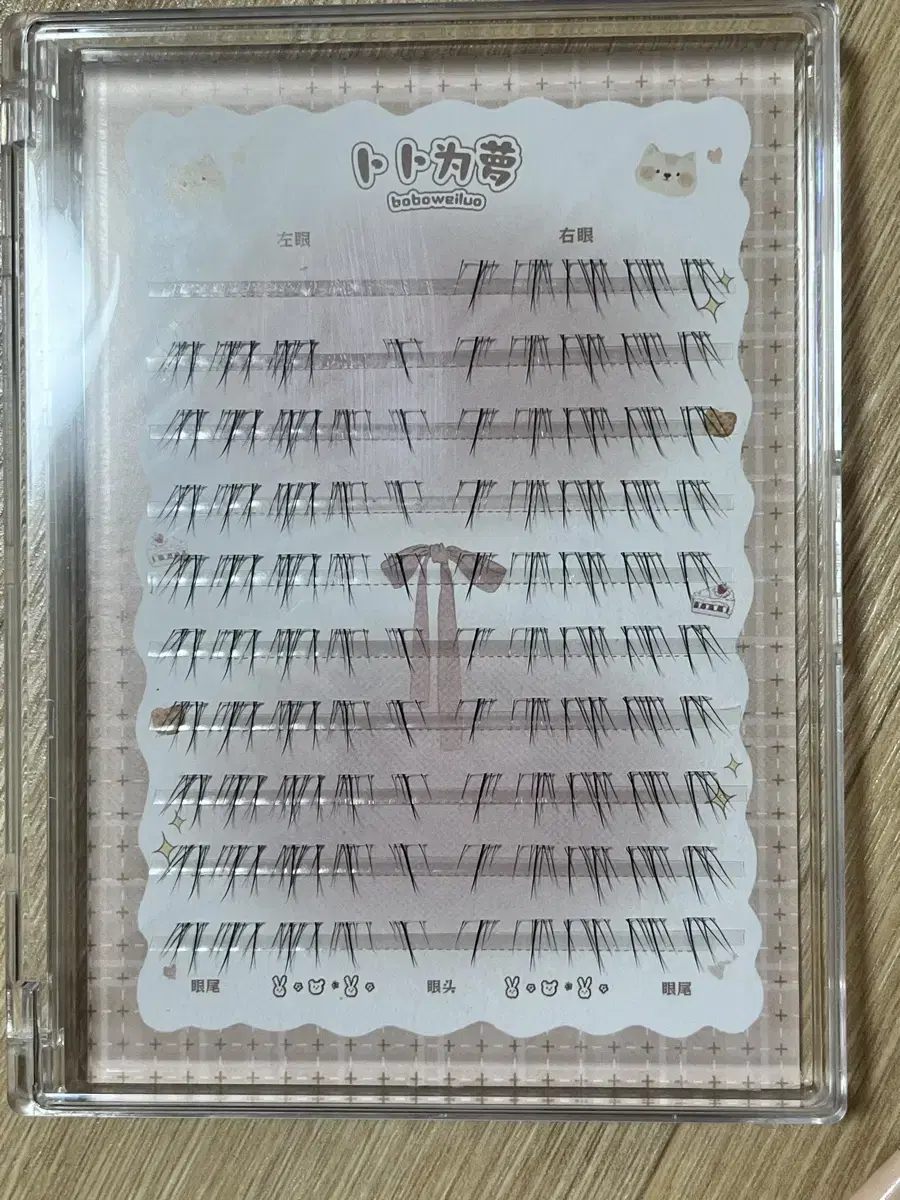 卜卜为萝
boboweiluo
左眼 右眼
眼尾 眼头 眼尾